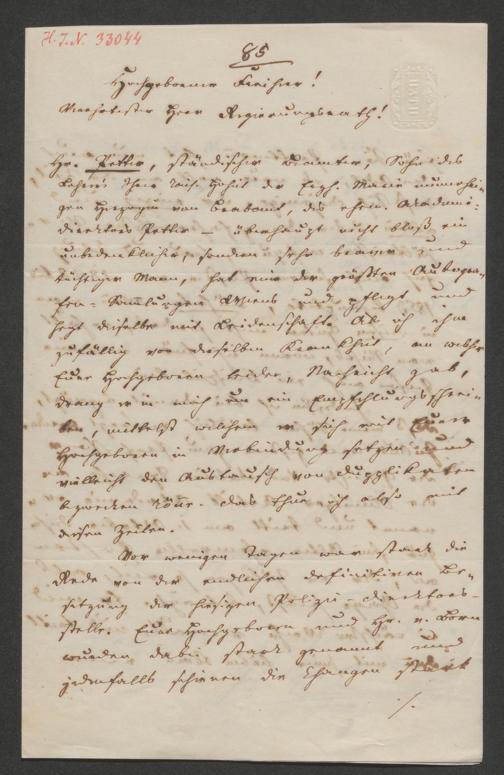 H. I. N. 33044
85
Hochgeborener Freiherr!
Verehrtester Herr Regierungsrath!
Hr. Petter, ständischer Beamter, Sohn des
Lehrers Ihrer kais. Hoheit der Erzh. Marie nunmehri-
gen Herzogin von Brabant, des ehem. Akademie-
direktors Petter – überhaupt nicht bloß ein
unbedenklicher, sondern sehr braver und
tüchtiger Mann, hat eine der größten Autogra-
fen-Sammlungen Wiens und pflegt und
hegt dieselbe mit Leidenschaft. Als ich ihm
zufällig von derselben Krankheit, an welcher
Euer Hochgeboren leiden, Nachricht gab,
drang er in mich um ein Empfehlungsschrei-
ben, mittelst welchem er sich mit Euer
Hochgeboren in Verbindung setzen und
vielleicht den Austausch von Dupplikaten
bezwecken könne. Das thue ich also mit
diesen Zeilen.
Vor wenigen Tagen war stark die
Rede von der endlichen definitiven Be-
setzung der hiesigen Polizei-Direktors-
stelle. Euer Hochgeboren und Hr. v. Born
wurden dabei stark genannt und
jedenfalls schienen die Chancen stark
./.